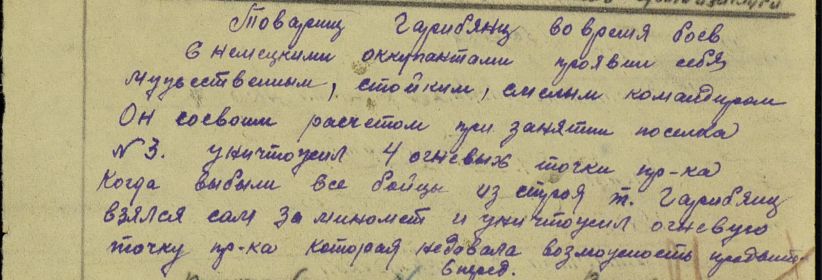 Товарищ Гарибянц во время боев
с немецкими оккупантами проявил себя
мужественным, стойким, смелым командиром
Он со своим расчетом при занятии поселка
№3. уничтожил 4 огневых точки пр-ка
Когда выбыли все бойцы из строя т. Гарибянц
взялся сам за миномет и уничтожил огневую
точку пр-ка которая недовала возможность продвит-
вперед.